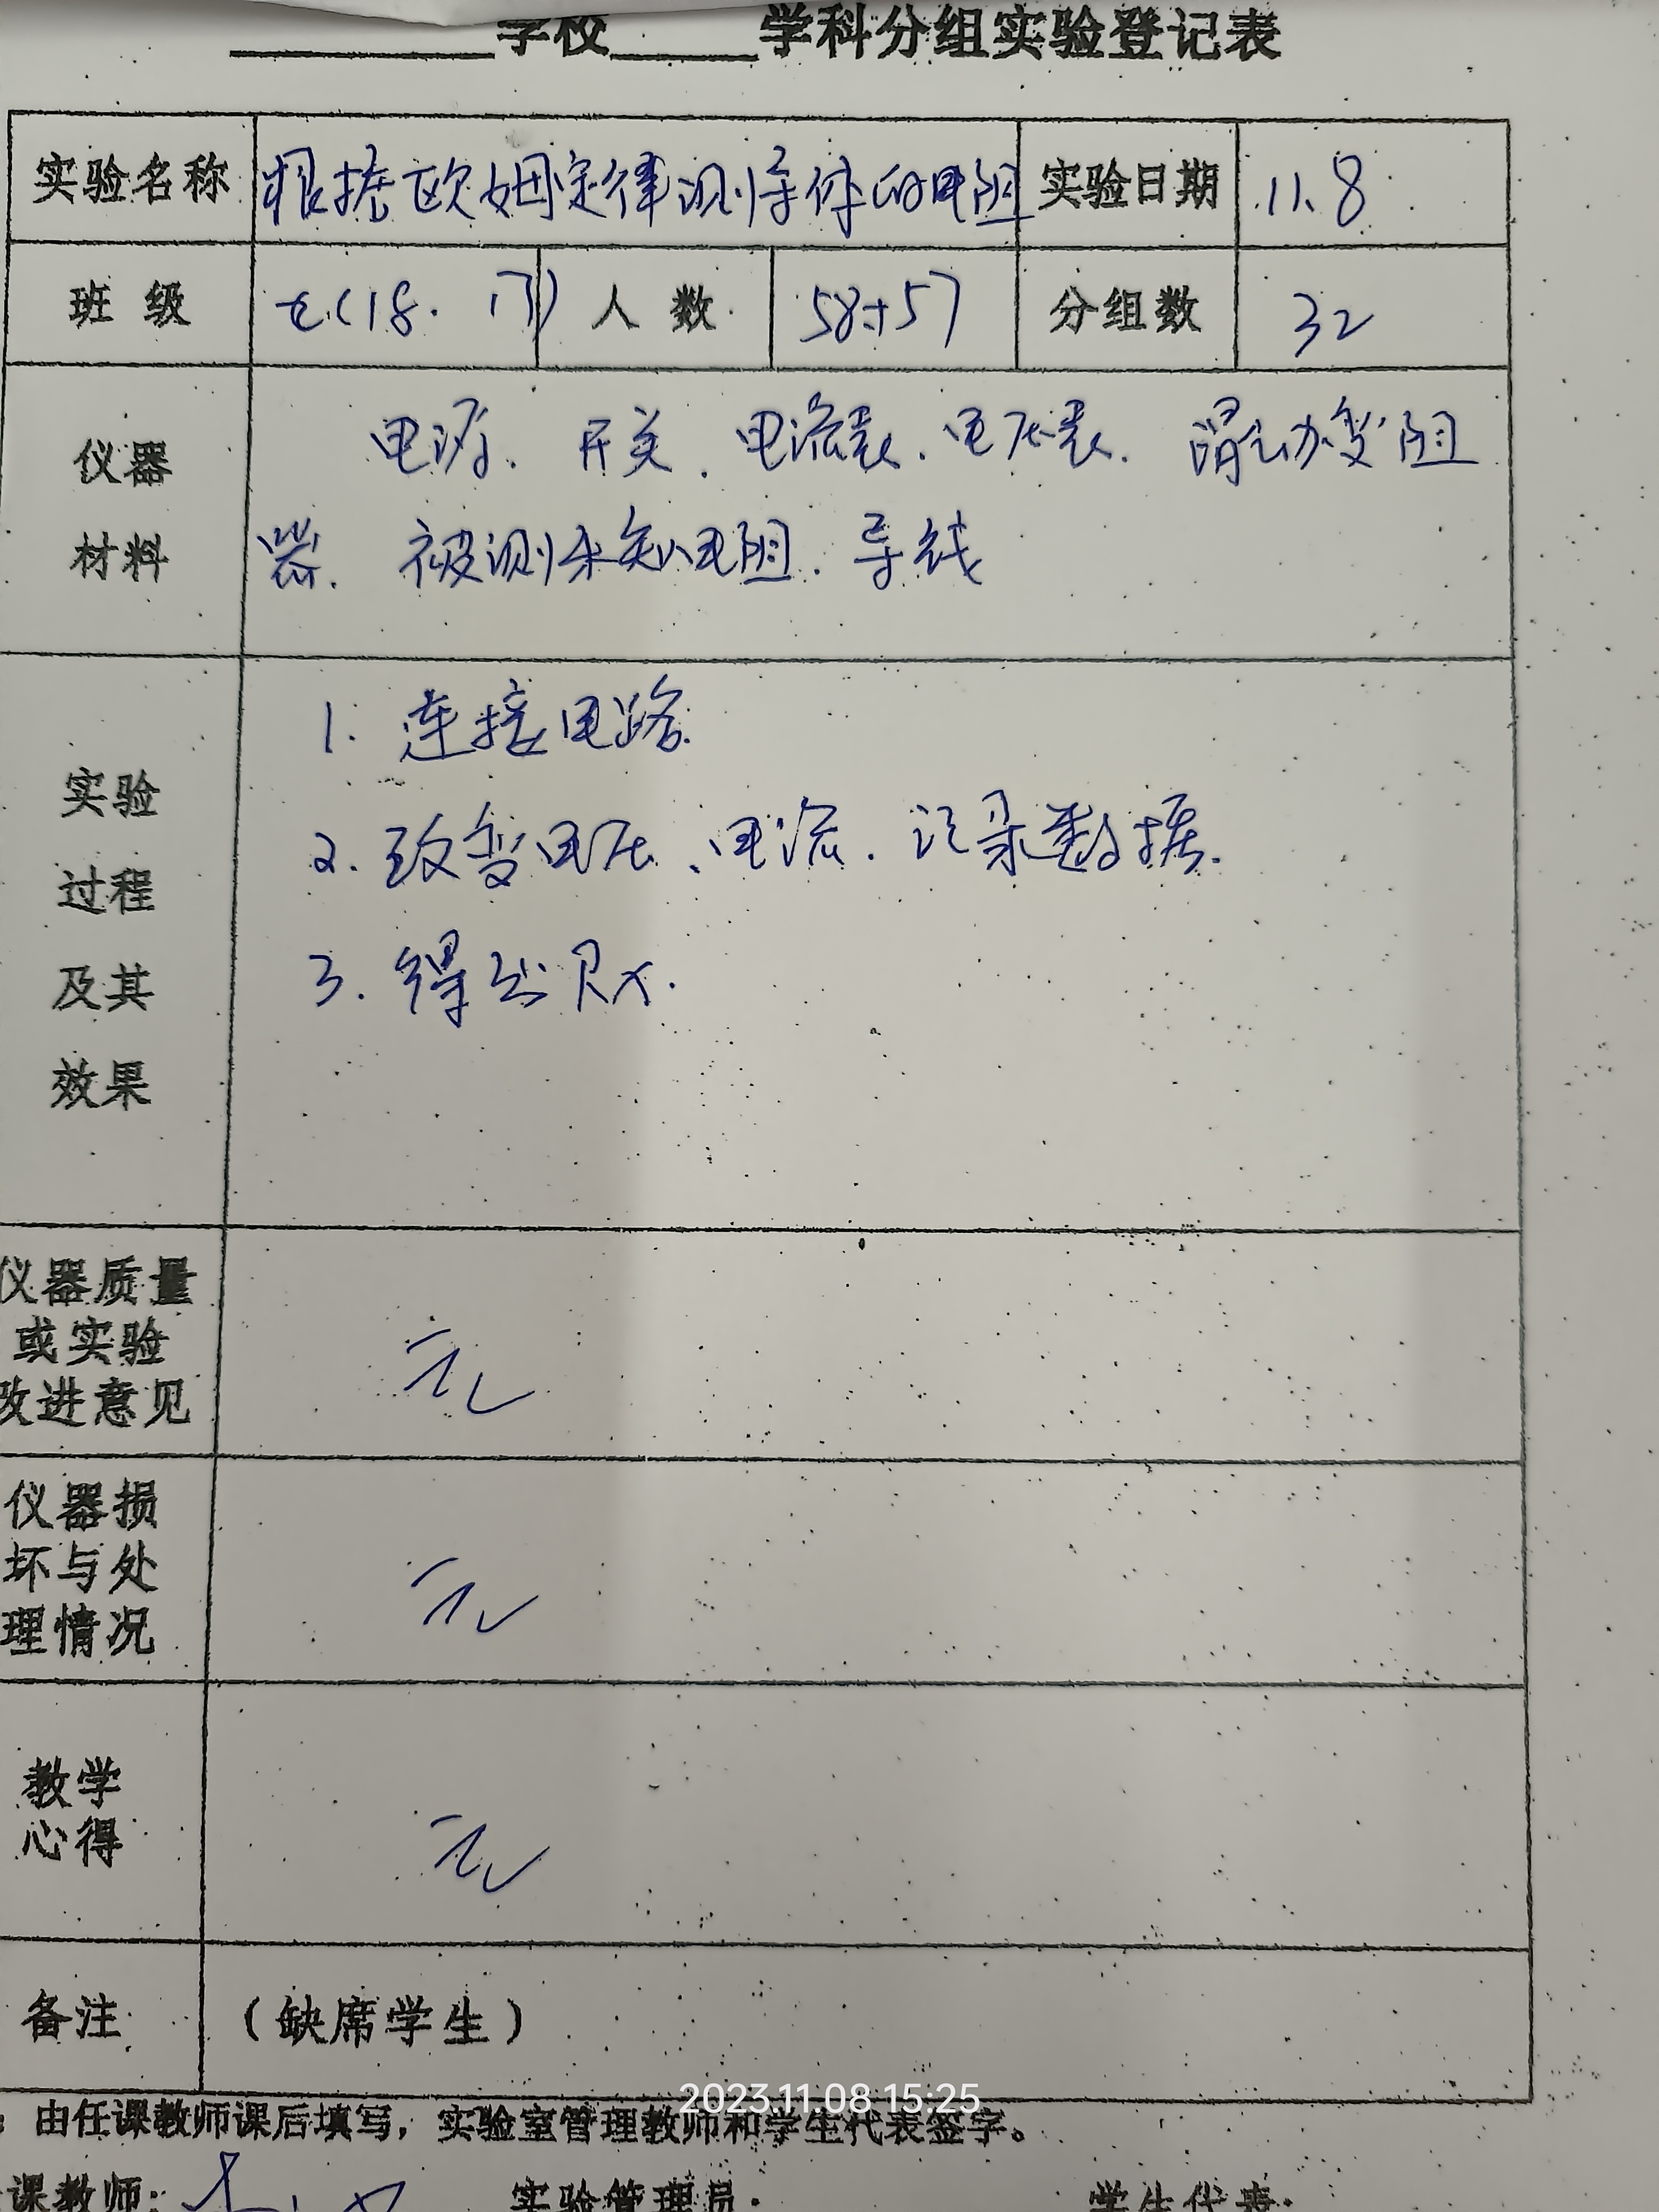 学校 学科分组实验登记表
实验名称 根据欧姆定律测导体的电阻 实验日期 11.8
班级 (18. 17) 人数 58+57 分组数 32
仪器
材料
电源、开关、电流表、电压表、滑动变阻
器、被测未知电阻、导线
实验
过程
及其
效果
1. 连接电路
2. 改变电压、电流、记录数据.
3. 得出Rx.
仪器质量
或实验
改进意见
无
仪器损
坏与处
理情况
无
教学
心得
无
备注 (缺席学生)
2023.11.08 15:25
：由任课教师课后填写，实验室管理教师和学生代表签字。
课教师: 实验管理员: 学生代表: